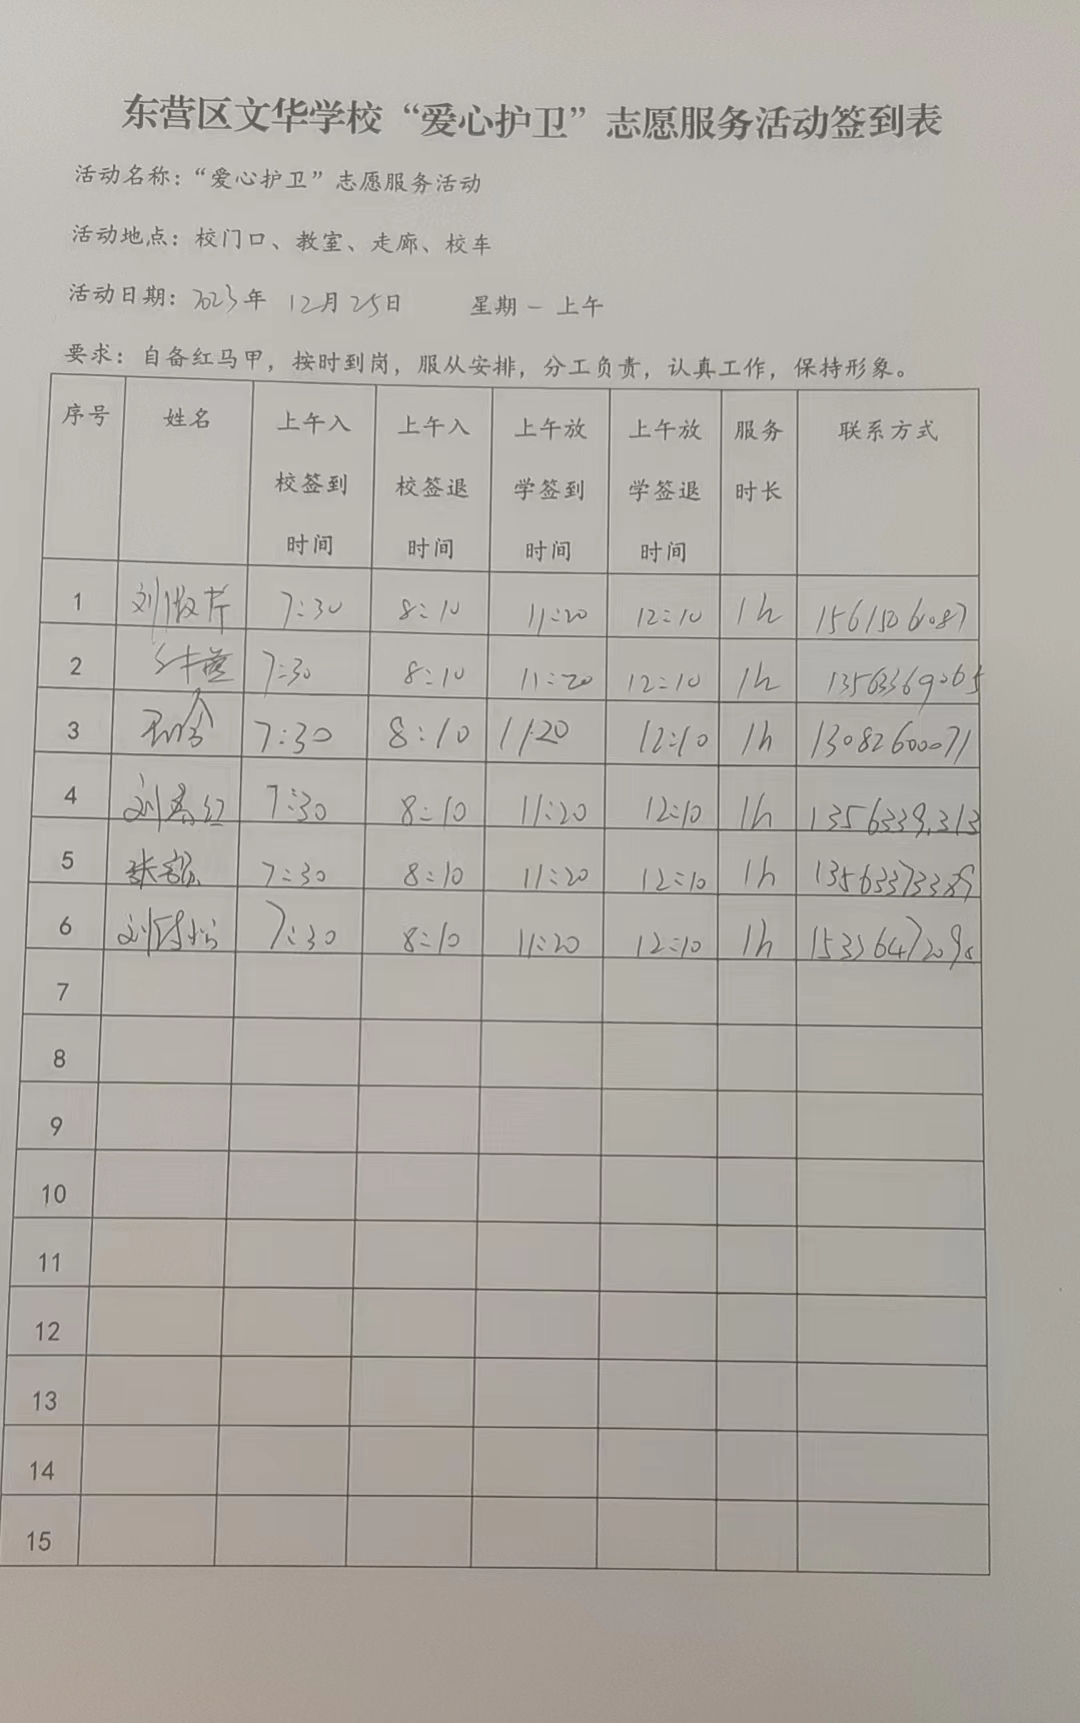 东营区文华学校“爱心护卫”志愿服务活动签到表
活动名称：“爱心护卫”志愿服务活动
活动地点：校门口、教室、走廊、校车
活动日期：2023年 12月25日 星期一 上午
要求：自备红马甲，按时到岗，服从安排，分工负责，认真工作，保持形象。
序号 姓名 上午入校签到时间 上午入校签退时间 上午放学签到时间 上午放学签退时间 服务时长 联系方式
1 7:30 8:10 11:20 12:10 1h
2 7:30 8:10 11:20 12:10 1h 13563369065
3 7:30 8:10 11:20 12:10 1h 13082600071
4 刘春红 7:30 8:10 11:20 12:10 1h
5 7:30 8:10 11:20 12:10 1h 13563373389
6 7:30 8:10 11:20 12:10 1h
7
8
9
10
11
12
13
14
15